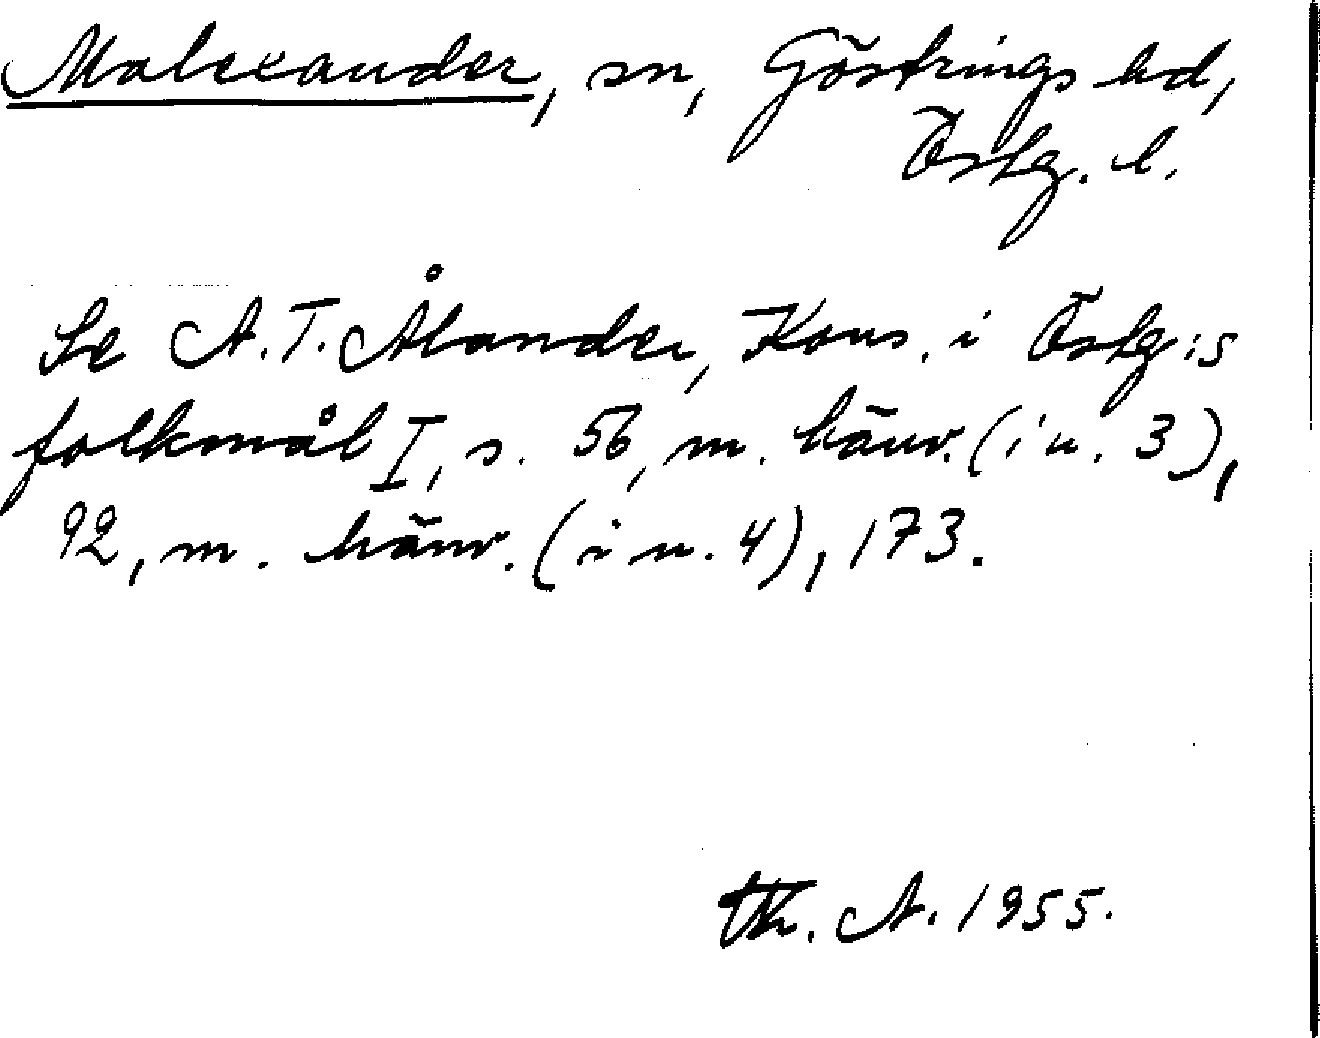 Malexander, sn, Göstrings hd,
Östg. l.
Se A. T. Ålander, Kons. i Östg:s
folkmål I, s. 56, m. hänv. (i n. 3),
92, m. hänv. (i n. 4), 173.
Th. A. 1955.